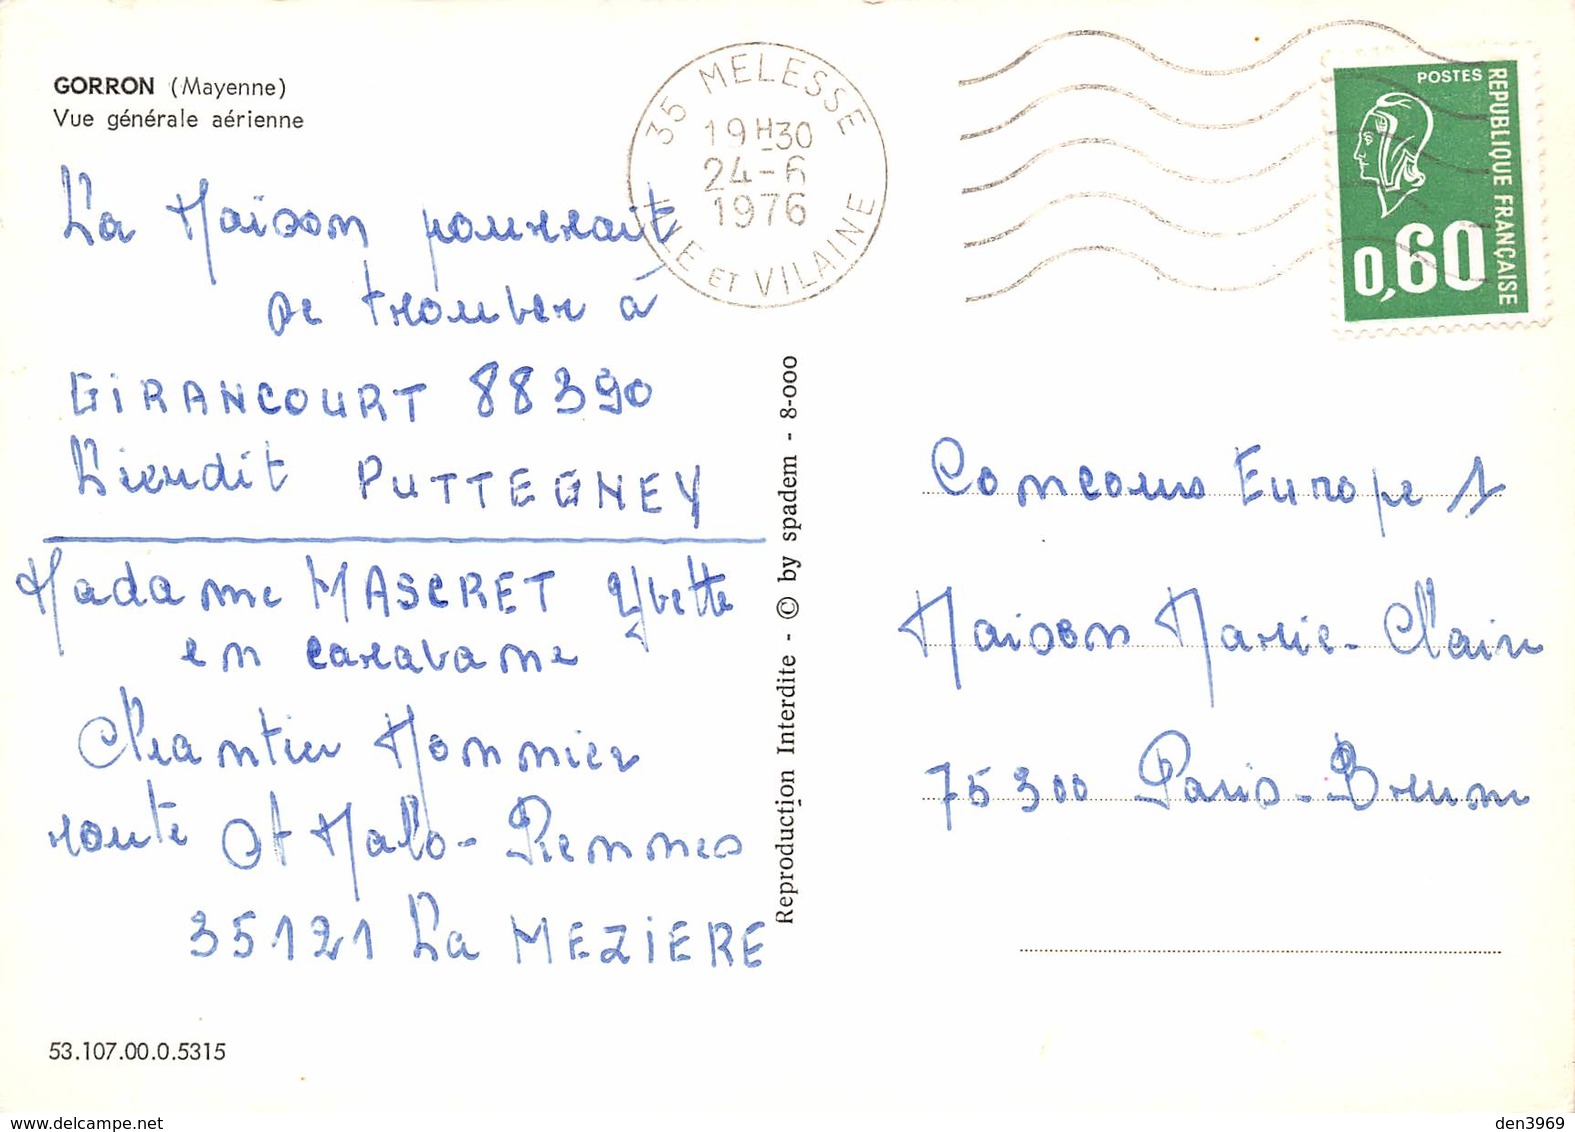 GORRON (Mayenne)
Vue générale aérienne
35 MELESSE
19H30
24-6
1976
ILLE ET VILAINE
POSTES
REPUBLIQUE FRANÇAISE
0,60
La Maison pourrait
se trouver à
GIRANCOURT 88390
Lieudit PUTTEGNEY
Madame MASCRET Yvette
en caravane
Chantier Monnier
route St Malo - Rennes
35121 La MEZIERE
Reproduction Interdite - © by spadem - 8-000
Concours Europe 1
Maison Marie-Clair
75300 Paris-Brune
53.107.00.0.5315
www.delcampe.net
den3969